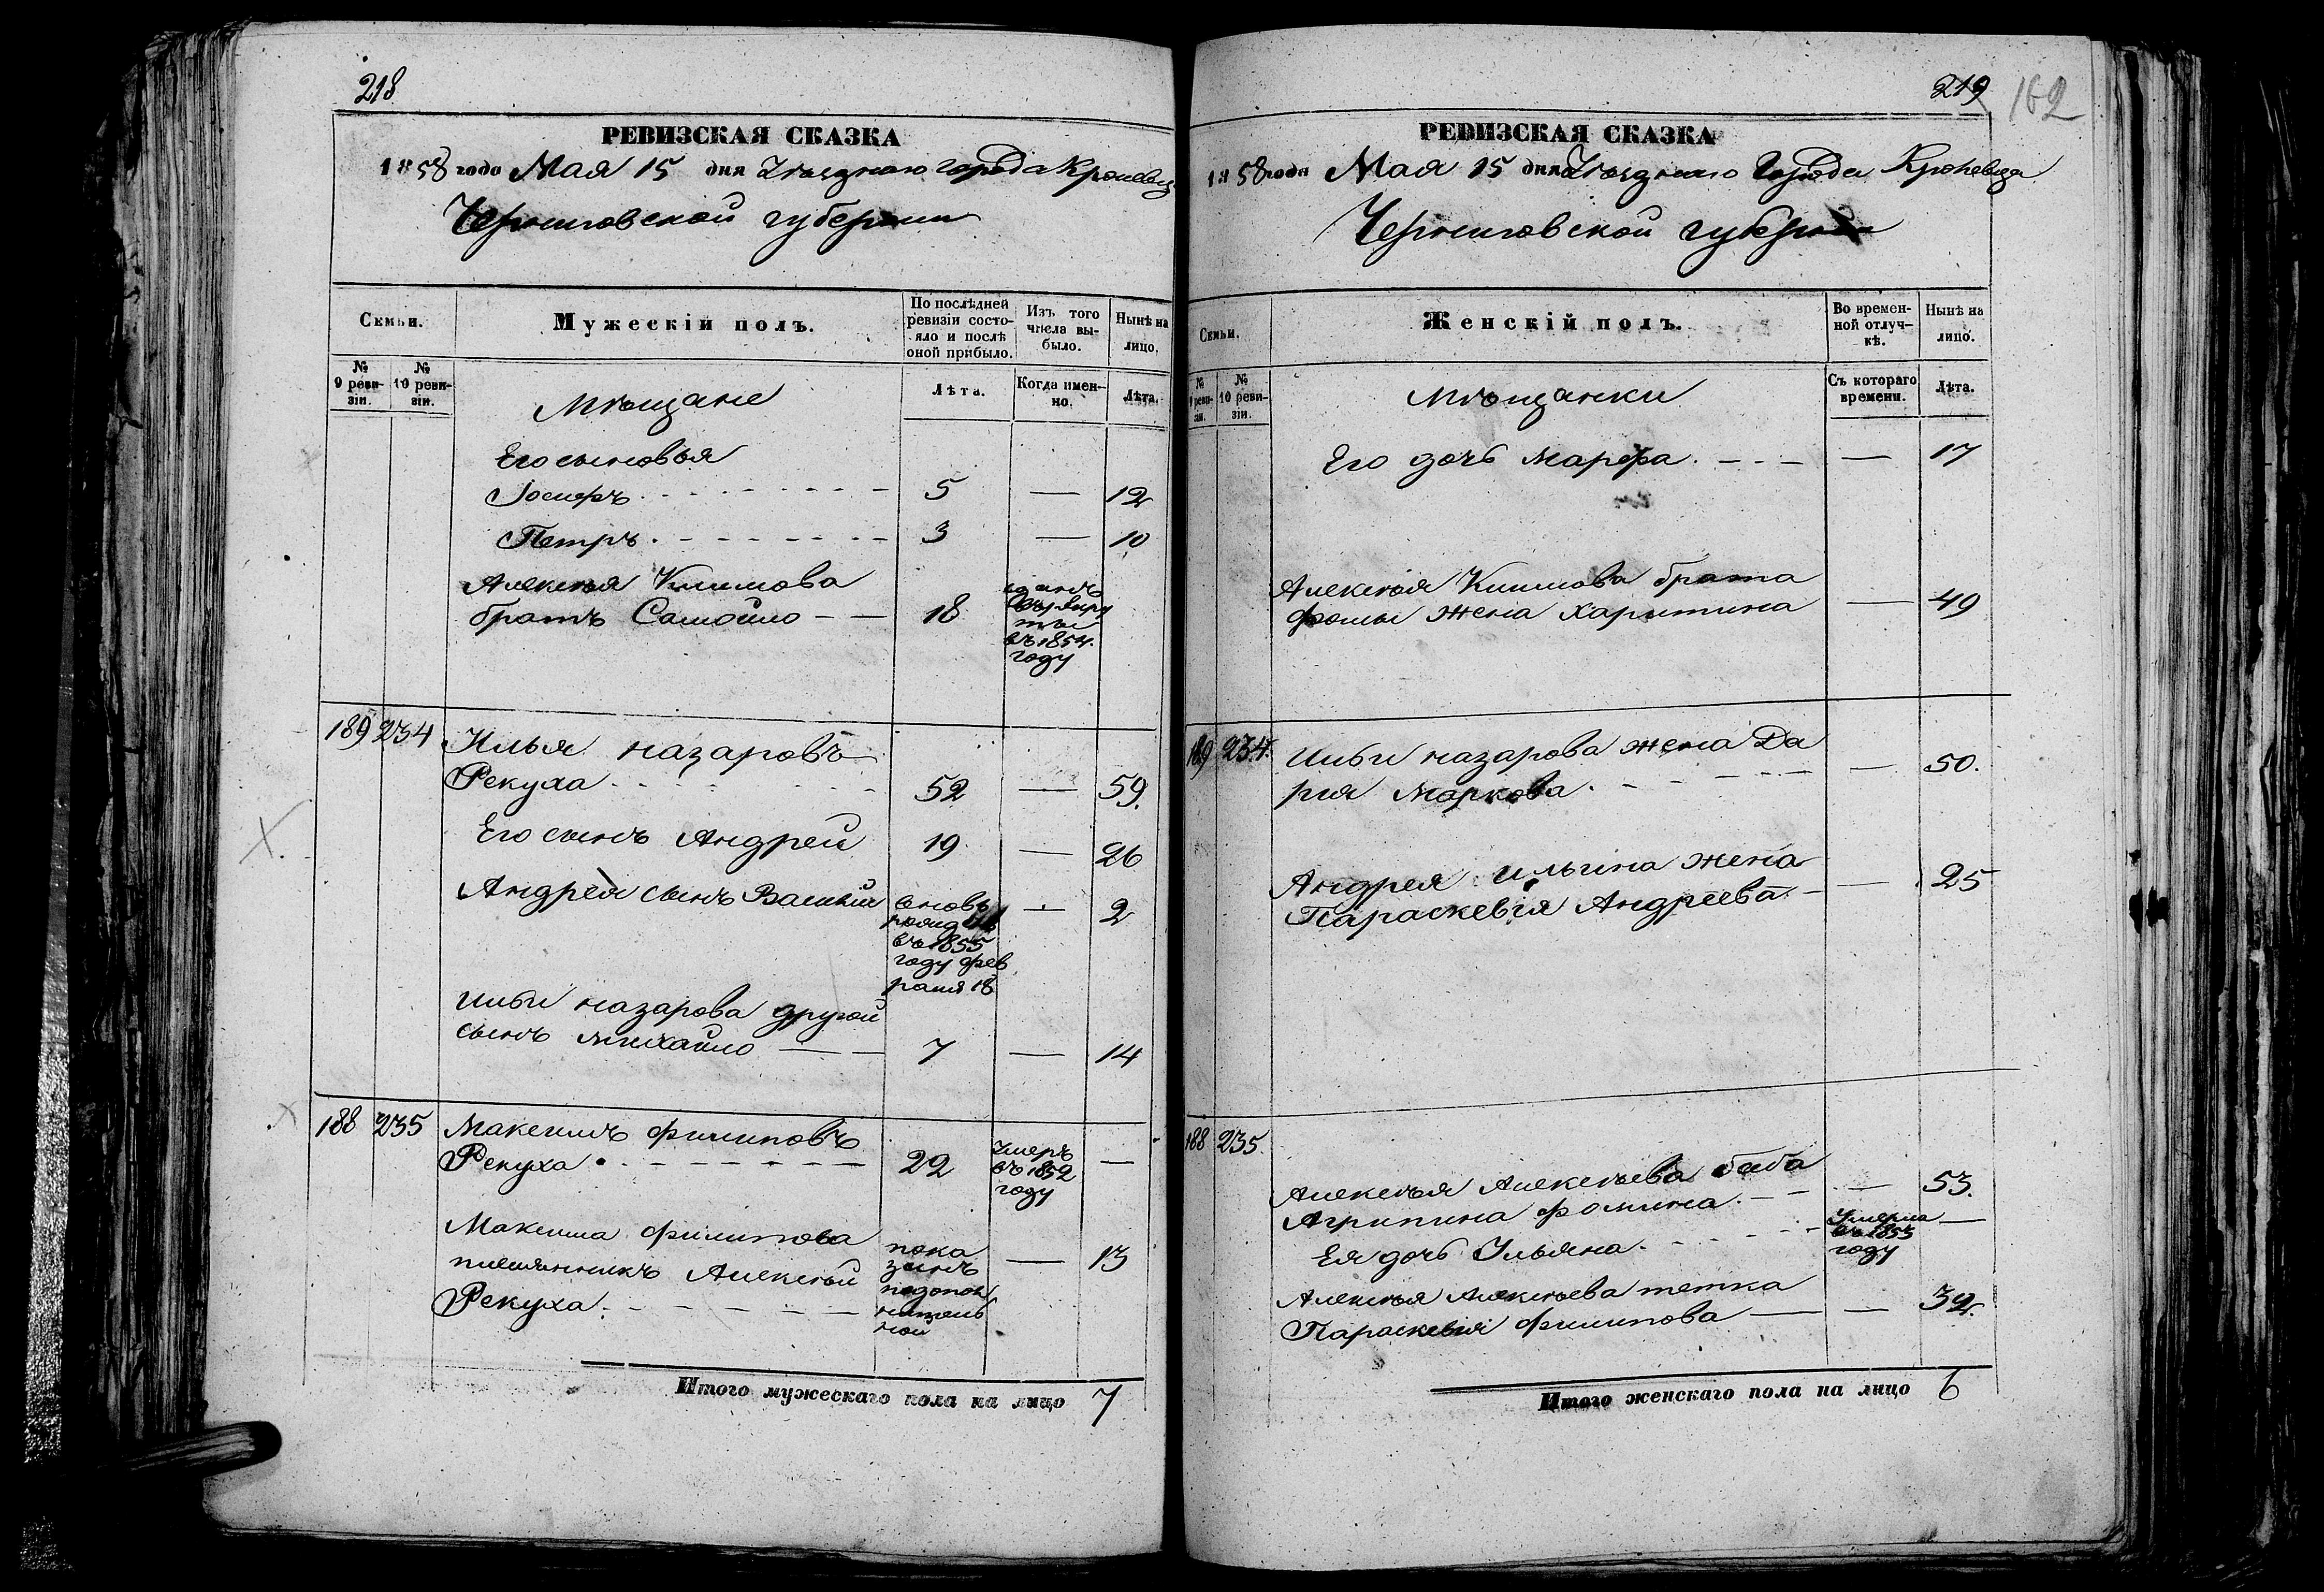 218
РЕВИЗСКАЯ СКАЗКА
1858 года Мая 15 дня Уѣзднаго города Кролевца
Черниговской губернии
Семьи.
Мужескій полъ.
По послѣдней ревизіи состояло и послѣ оной прибыло.
Изъ того числа выбыло.
Нынѣ на лицо.
№ 9 ревизіи.
№ 10 ревизіи.
Мѣщане
Лѣта.
Когда именно.
Лѣта.
Его сыновья
Іосифъ 5 — 12
Петръ 3 — 10
Алексѣя Климова
братъ Самойло — 18
въ рекру
ты
въ 1854.
году
189 234 Илья назаровъ
Рекуха 52 — 59.
Его сынъ Андрей 19 — 26
Андрея сынъ Василій — 2
вновь
рожден
въ 1855
году фев
раля 18
Ильи назарова другой
сынъ михайло — 7 — 14
188 235 Максимъ филиповъ
Рекуха 22 —
Умеръ
въ 1852
году
Максима филипова
племянникъ Алексѣй — 13
Рекуха
пока
занъ
подопол
нитель
ной
Итого мужескаго пола на лицо 7
219
162
РЕВИЗСКАЯ СКАЗКА
1858 года Мая 15 дня Уѣзднаго Города Кролевца
Черниговской губерніи
Семьи.
Женскій полъ.
Во временной отлучкѣ.
Нынѣ на лицо.
№ 9 ревизіи.
№ 10 ревизіи.
Мѣщанки
Съ котораго времени.
Лѣта.
Его дочь Марфа — 17
Алексѣя Климова брата
фомы жена Харитина — 49
189 234. Ильи назарова жена Да
рия Маркова — 50.
Андрея ильина жена
Параскевия Андреева — 25
188 235.
Алексѣя Алексѣева баба
Агрипина фомина — 53.
Ея дочь Ульяна —
Умерла
въ 1855
году
Алексѣя Алексѣева тетка
Параскевия филипова — 32.
Итого женскаго пола на лицо 6